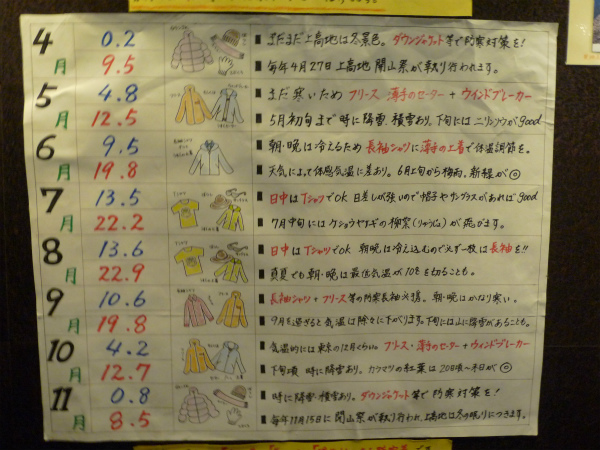 4月
0.2
9.5
まだまだ上高地は冬景色。ダウンジャケット等で防寒対策を!
毎年4月27日上高地開山祭が執り行われます。
5月
4.8
12.5
まだ寒いため フリース 薄手のセーター + ウインドブレーカー
5月初旬まで時に降雪 積雪あり。下旬にはニリンソウがgood
6月
9.5
19.8
朝・晩は冷えるため 長袖シャツに薄手の上着で体温調節を。
天気によって体感気温に差あり。6月上旬から梅雨。新緑が◎
7月
13.5
22.2
日中はTシャツでOK 日差しが強いので帽子やサングラスがあればgood
7月中旬にはケショウヤナギの柳絮(りゅうじょ)が飛びます。
8月
13.6
22.9
日中はTシャツでOK 朝晩は冷え込むので必ず一枚は長袖を!!
真夏でも朝・晩は最低気温が10℃を切ることも。
9月
10.6
19.8
長袖シャツ + フリース等の防寒長袖必携。朝・晩はかなり寒い。
9月を過ぎると気温は徐々に下がります。下旬には山に降雪があることも。
10月
4.2
12.7
気温的には東京の12月くらい。フリース・薄手のセーター + ウィンドブレーカー
下旬頃 時に降雪あり。カラマツの紅葉は20日頃〜末日が◎
11月
0.8
8.5
時に降雪・積雪あり。ダウンジャケット等で防寒対策を!
毎年11月15日に閉山祭が執り行われ、上高地は冬の眠りにつきます。